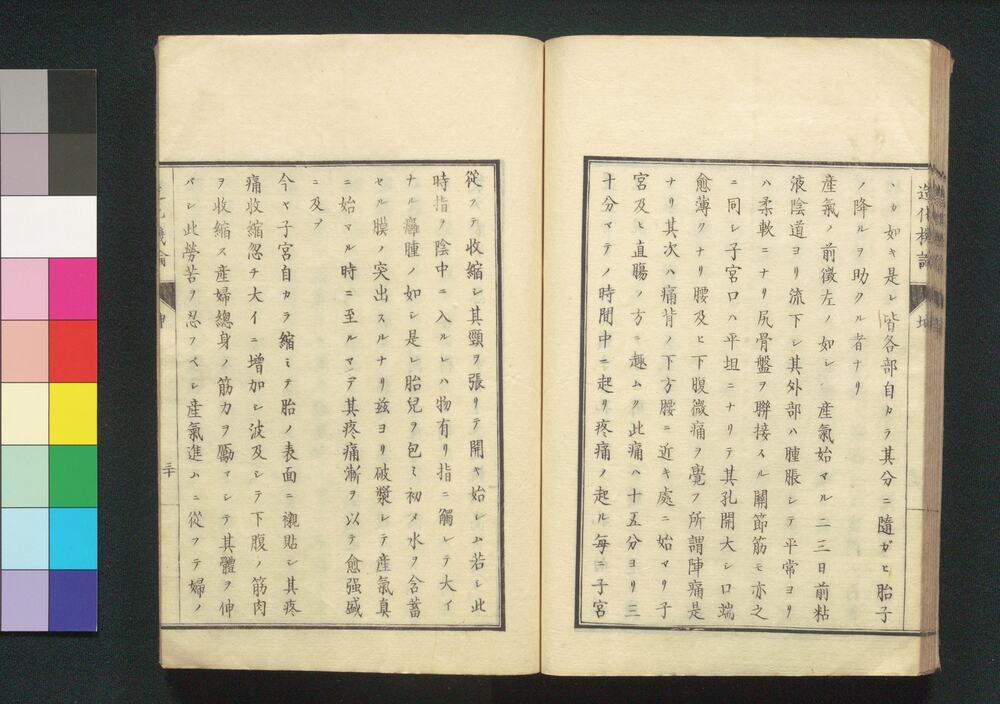 如キ是レ皆各部自カラ其分ニ隨ガヒ胎子
ノ降ルヲ助クル者ナリ
産氣ノ前徴左ノ如シ産氣始マル二三日前粘
液陰道ヨリ流下シ其外部ハ腫脹シテ平常ヨリ
ハ柔軟ニナリ尻骨盤ヲ聯接スル關節筋モ亦之
ニ同シ子宮口ハ平坦ニナリテ其孔開大シ口端
愈薄クナリ腰及ヒ下腹微痛ヲ覺フ所謂陣痛是
ナリ其次ハ痛背ノ下方腰ニ近キ處ニ始マリ子
宮及ヒ直膓ノ方ニ趣ムク此痛ハ十五分ヨリ三
十分マテノ時間中ニ起リ疼痛ノ起ル毎ニ子宮
從フテ收縮シ其頸ヲ張リテ開キ始レム若シ此
時指ヲ陰中ニ入ルレハ物有リ指ニ觸レテ大イ
ナル腫ノ如シ是レ胎兒ヲ包ミ初メ水ヲ含蓄
セル膜ノ突出スルナリ兹ヨリ破漿レテ産氣真
ニ始マル時ニ至ルマデ其疼痛漸ヲ以テ愈强盛
ニ及ブ
今ヤ子宮自カラ縮ミテ胎ノ表面ニ襯貼シ其疼
痛收縮忽チ大イニ增加シ波及シテ下腹ノ筋肉
ヲ收縮ス産婦總身ノ筋力ヲ勵マシテ其體ヲ伸
バシ此勞苦ヲ忍フベシ産氣進ムニ從フテ婦ノ
三十